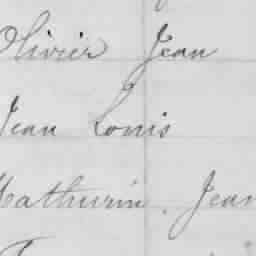 Olivier Jean
Jean Louis
Mathurin. Jean